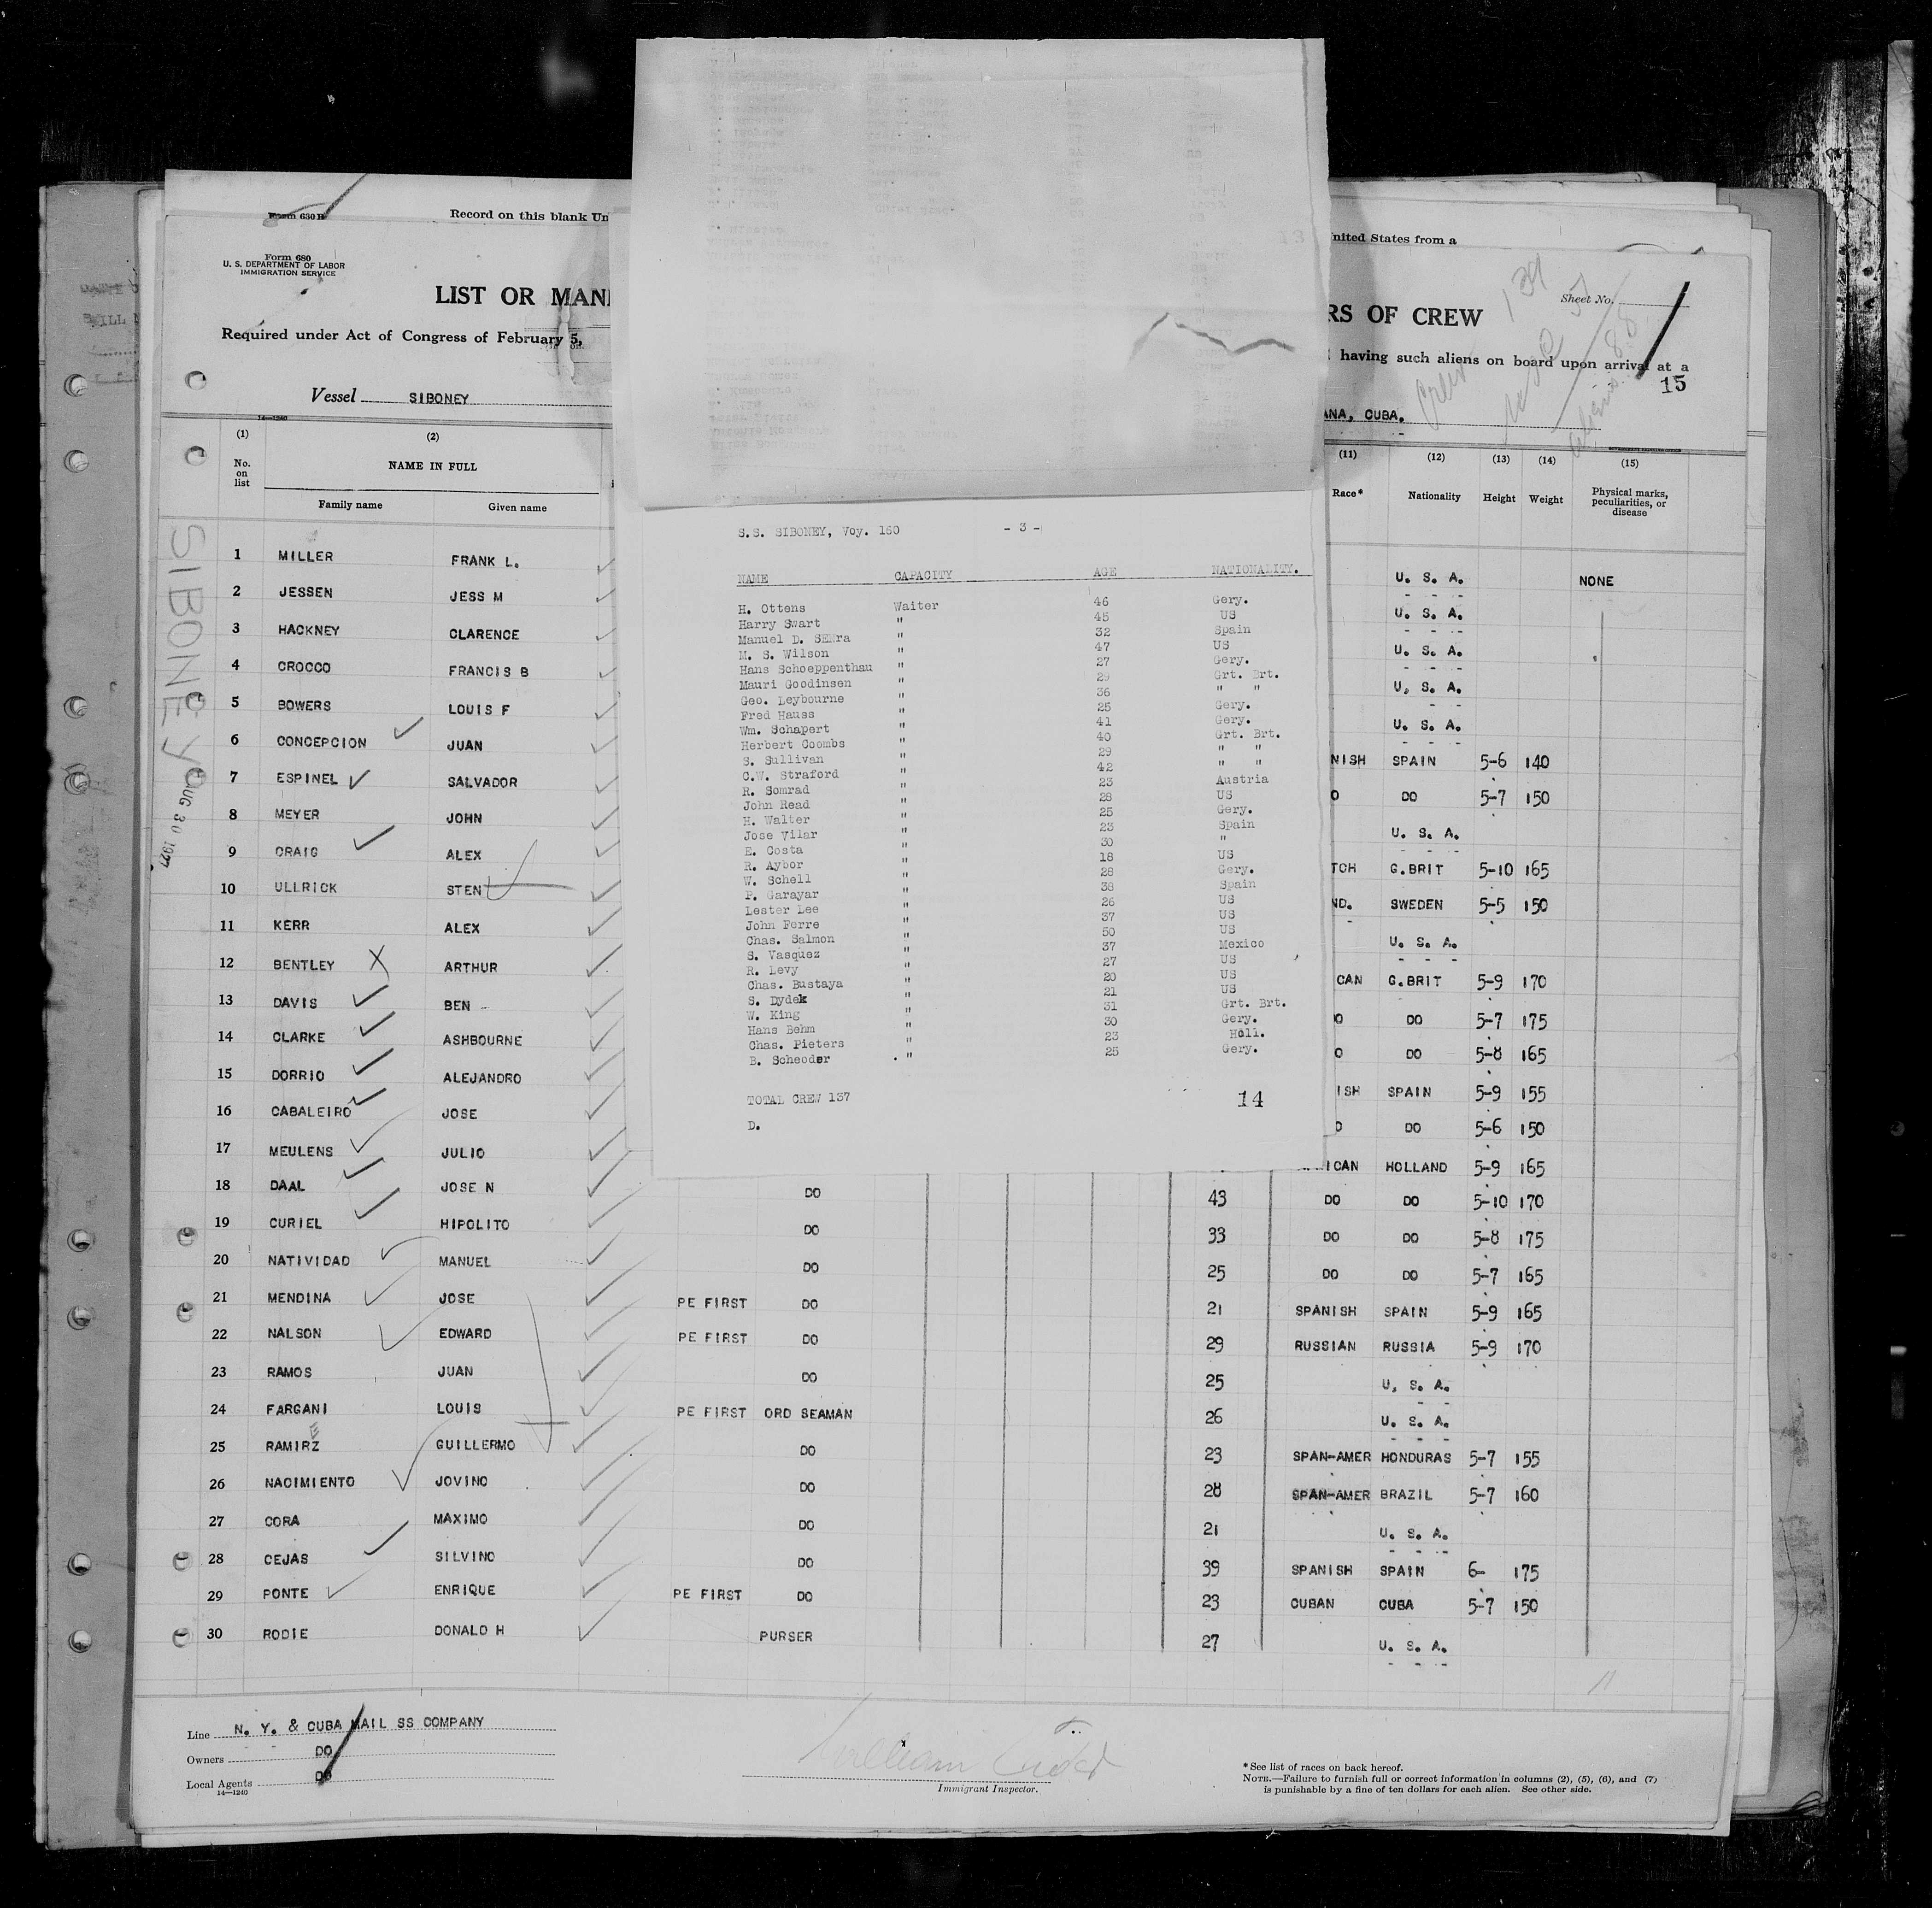 Form 630 B
Record on this blank Un
nited States from a
Form 680
U. S. DEPARTMENT OF LABOR
IMMIGRATION SERVICE
LIST OR MANI
RS OF CREW
Sheet No.
Required under Act of Congress of February 5,
having such aliens on board upon arrival at a
15
Vessel SIBONEY
ANA, CUBA.
14—1240
(1) (2) (11) (12) (13) (14) (15)
No. on list NAME IN FULL Race* Nationality Height Weight Physical marks, peculiarities, or disease
Family name Given name
SIBONEY
AUG 30 1927
1 MILLER FRANK L. U. S. A. NONE
2 JESSEN JESS M U. S. A.
3 HACKNEY CLARENCE U. S. A.
4 CROCCO FRANCIS B U. S. A.
5 BOWERS LOUIS F U. S. A.
6 CONCEPCION JUAN NISH SPAIN 5-6 140
7 ESPINEL SALVADOR O DO 5-7 150
8 MEYER JOHN U. S. A.
9 CRAIG ALEX TCH G.BRIT 5-10 165
10 ULLRICK STEN ND. SWEDEN 5-5 150
11 KERR ALEX U. S. A.
12 BENTLEY ARTHUR CAN G.BRIT 5-9 170
13 DAVIS BEN O DO 5-7 175
14 CLARKE ASHBOURNE O DO 5-8 165
15 DORRIO ALEJANDRO ISH SPAIN 5-9 155
16 CABALEIRO JOSE O DO 5-6 150
17 MEULENS JULIO ICAN HOLLAND 5-9 165
18 DAAL JOSE N DO 43 DO DO 5-10 170
19 CURIEL HIPOLITO DO 33 DO DO 5-8 175
20 NATIVIDAD MANUEL DO 25 DO DO 5-7 165
21 MENDINA JOSE PE FIRST DO 21 SPANISH SPAIN 5-9 165
22 NALSON EDWARD PE FIRST DO 29 RUSSIAN RUSSIA 5-9 170
23 RAMOS JUAN DO 25 U. S. A.
24 FARGANI LOUIS PE FIRST ORD SEAMAN 26 U. S. A.
25 RAMIRZ GUILLERMO DO 23 SPAN-AMER HONDURAS 5-7 155
26 NACIMIENTO JOVINO DO 28 SPAN-AMER BRAZIL 5-7 160
27 CORA MAXIMO DO 21 U. S. A.
28 CEJAS SILVINO DO 39 SPANISH SPAIN 6- 175
29 PONTE ENRIQUE PE FIRST DO 23 CUBAN CUBA 5-7 150
30 RODIE DONALD H PURSER 27 U. S. A.
S.S. SIBONEY, Voy. 160 - 3 -
NAME CAPACITY AGE NATIONALITY.
H. Ottens Waiter 46 Gery.
Harry Swart " 45 US
Manuel D. " 32 Spain
M. S. Wilson " 47 US
Hans Schoeppenthau " 27 Gery.
Mauri Goodinsen " 29 Grt. Brt.
Geo. Leybourne " 36 " "
Fred Hauss " 25 Gery.
Wm. Schapert " 41 Gery.
Herbert Coombs " 40 Grt. Brt.
S. Sullivan " 29 " "
C.W. Straford " 42 " "
R. Somrad " 23 Austria
John Read " 28 US
H. Walter " 25 Gery.
Jose Vilar " 23 Spain
E. Costa " 30 "
R. Aybor " 18 US
W. Schell " 28 Gery.
P. Garayar " 38 Spain
Lester Lee " 26 US
John Ferre " 37 US
Chas. Salmon " 50 US
S. Vasquez " 37 Mexico
R. Levy " 27 US
Chas. Bustaya " 20 US
S. Dydek " 21 US
W. King " 31 Grt. Brt.
Hans Behm " 30 Gery.
Chas. Pieters " 23 Holl.
B. Scheoder " 25 Gery.
TOTAL CREW 137 14
D.
Line N. Y. & CUBA MAIL SS COMPANY
Owners DO
Local Agents DO
14—1240
Immigrant Inspector.
*See list of races on back hereof.
NOTE.—Failure to furnish full or correct information in columns (2), (5), (6), and (7)
is punishable by a fine of ten dollars for each alien. See other side.